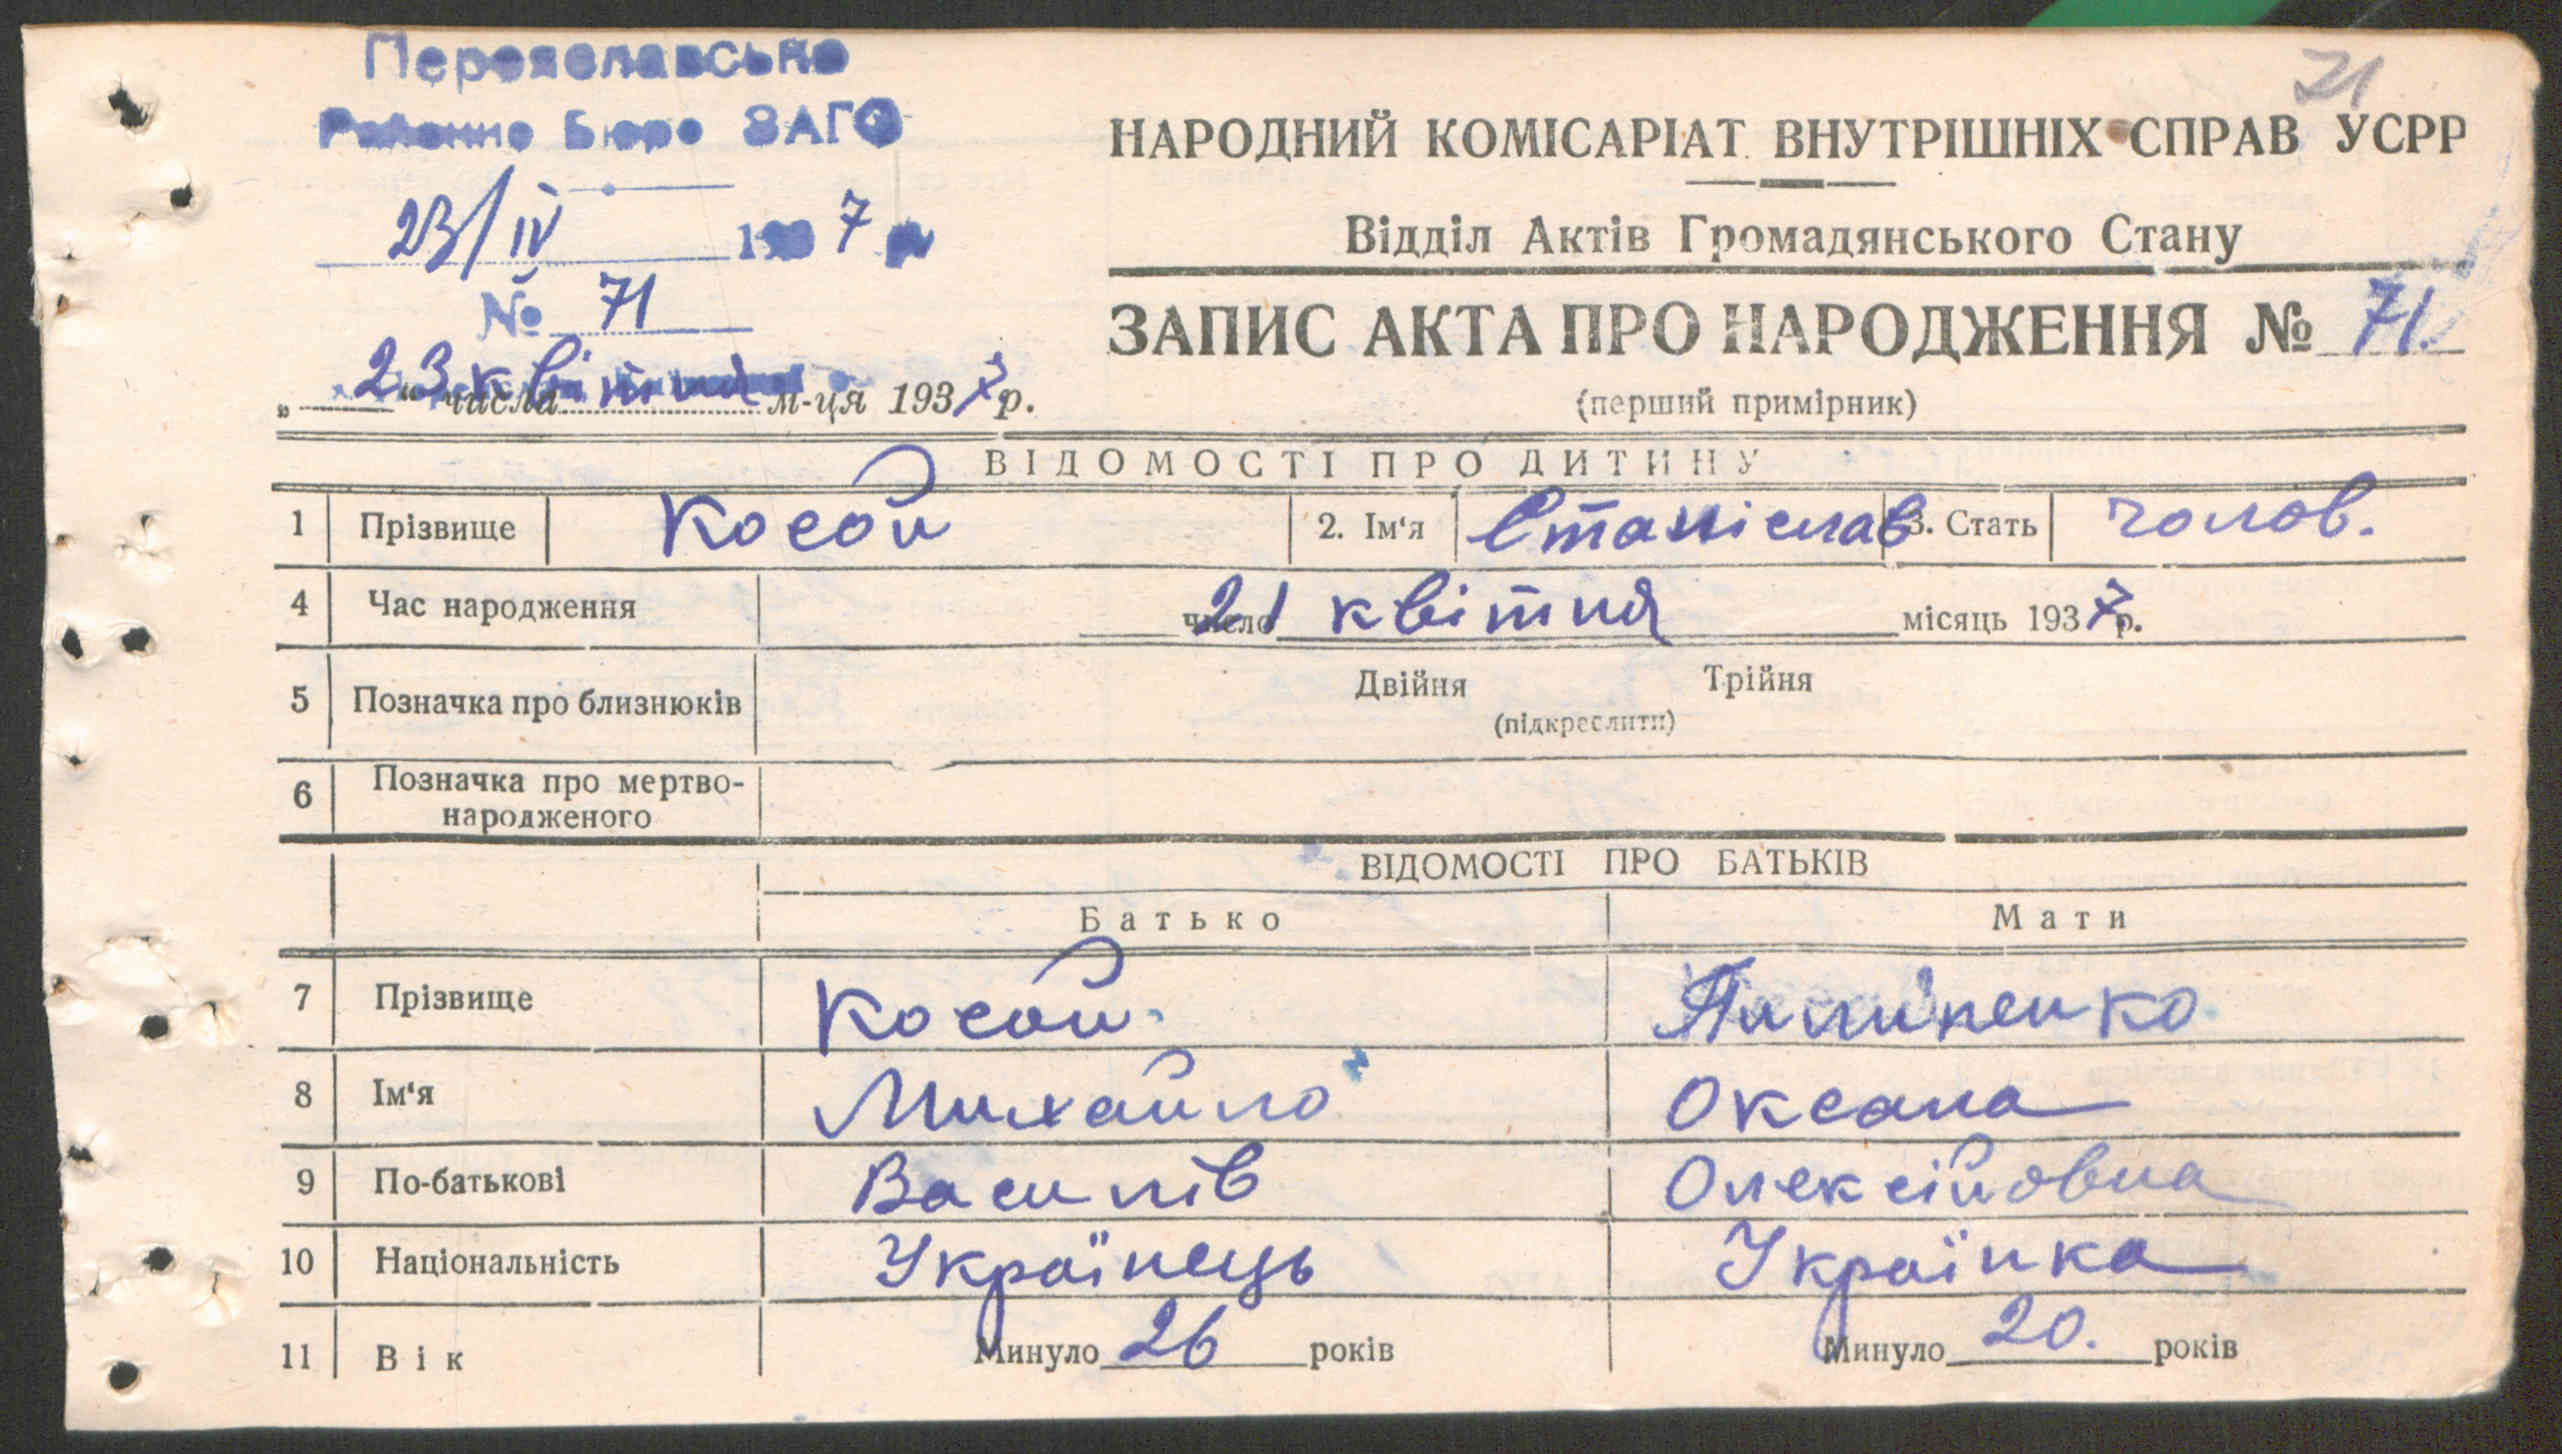 Переяславське
Районне Бюро ЗАГС
23/IV 1937 р
№ 71
21
НАРОДНИЙ КОМІСАРІАТ ВНУТРІШНІХ СПРАВ УСРР
Відділ Актів Громадянського Стану
ЗАПИС АКТА ПРО НАРОДЖЕННЯ № 71.
„23“ числа квітня м-ця 1937 р.
(перший примірник)
ВІДОМОСТІ ПРО ДИТИНУ
1 Прізвище Косой 2. Ім‘я Станіслав 3. Стать чолов.
4 Час народження 21 число квітня місяць 1937 р.
5 Позначка про близнюків Двійня Трійня
(підкреслити)
6 Позначка про мертво-
народженого
ВІДОМОСТІ ПРО БАТЬКІВ
Батько Мати
7 Прізвище Косой
8 Ім‘я Михайло Оксана
9 По-батькові Василів Олексійовна
10 Національність Українець Українка
11 Вік Минуло 26 років Минуло 20. років